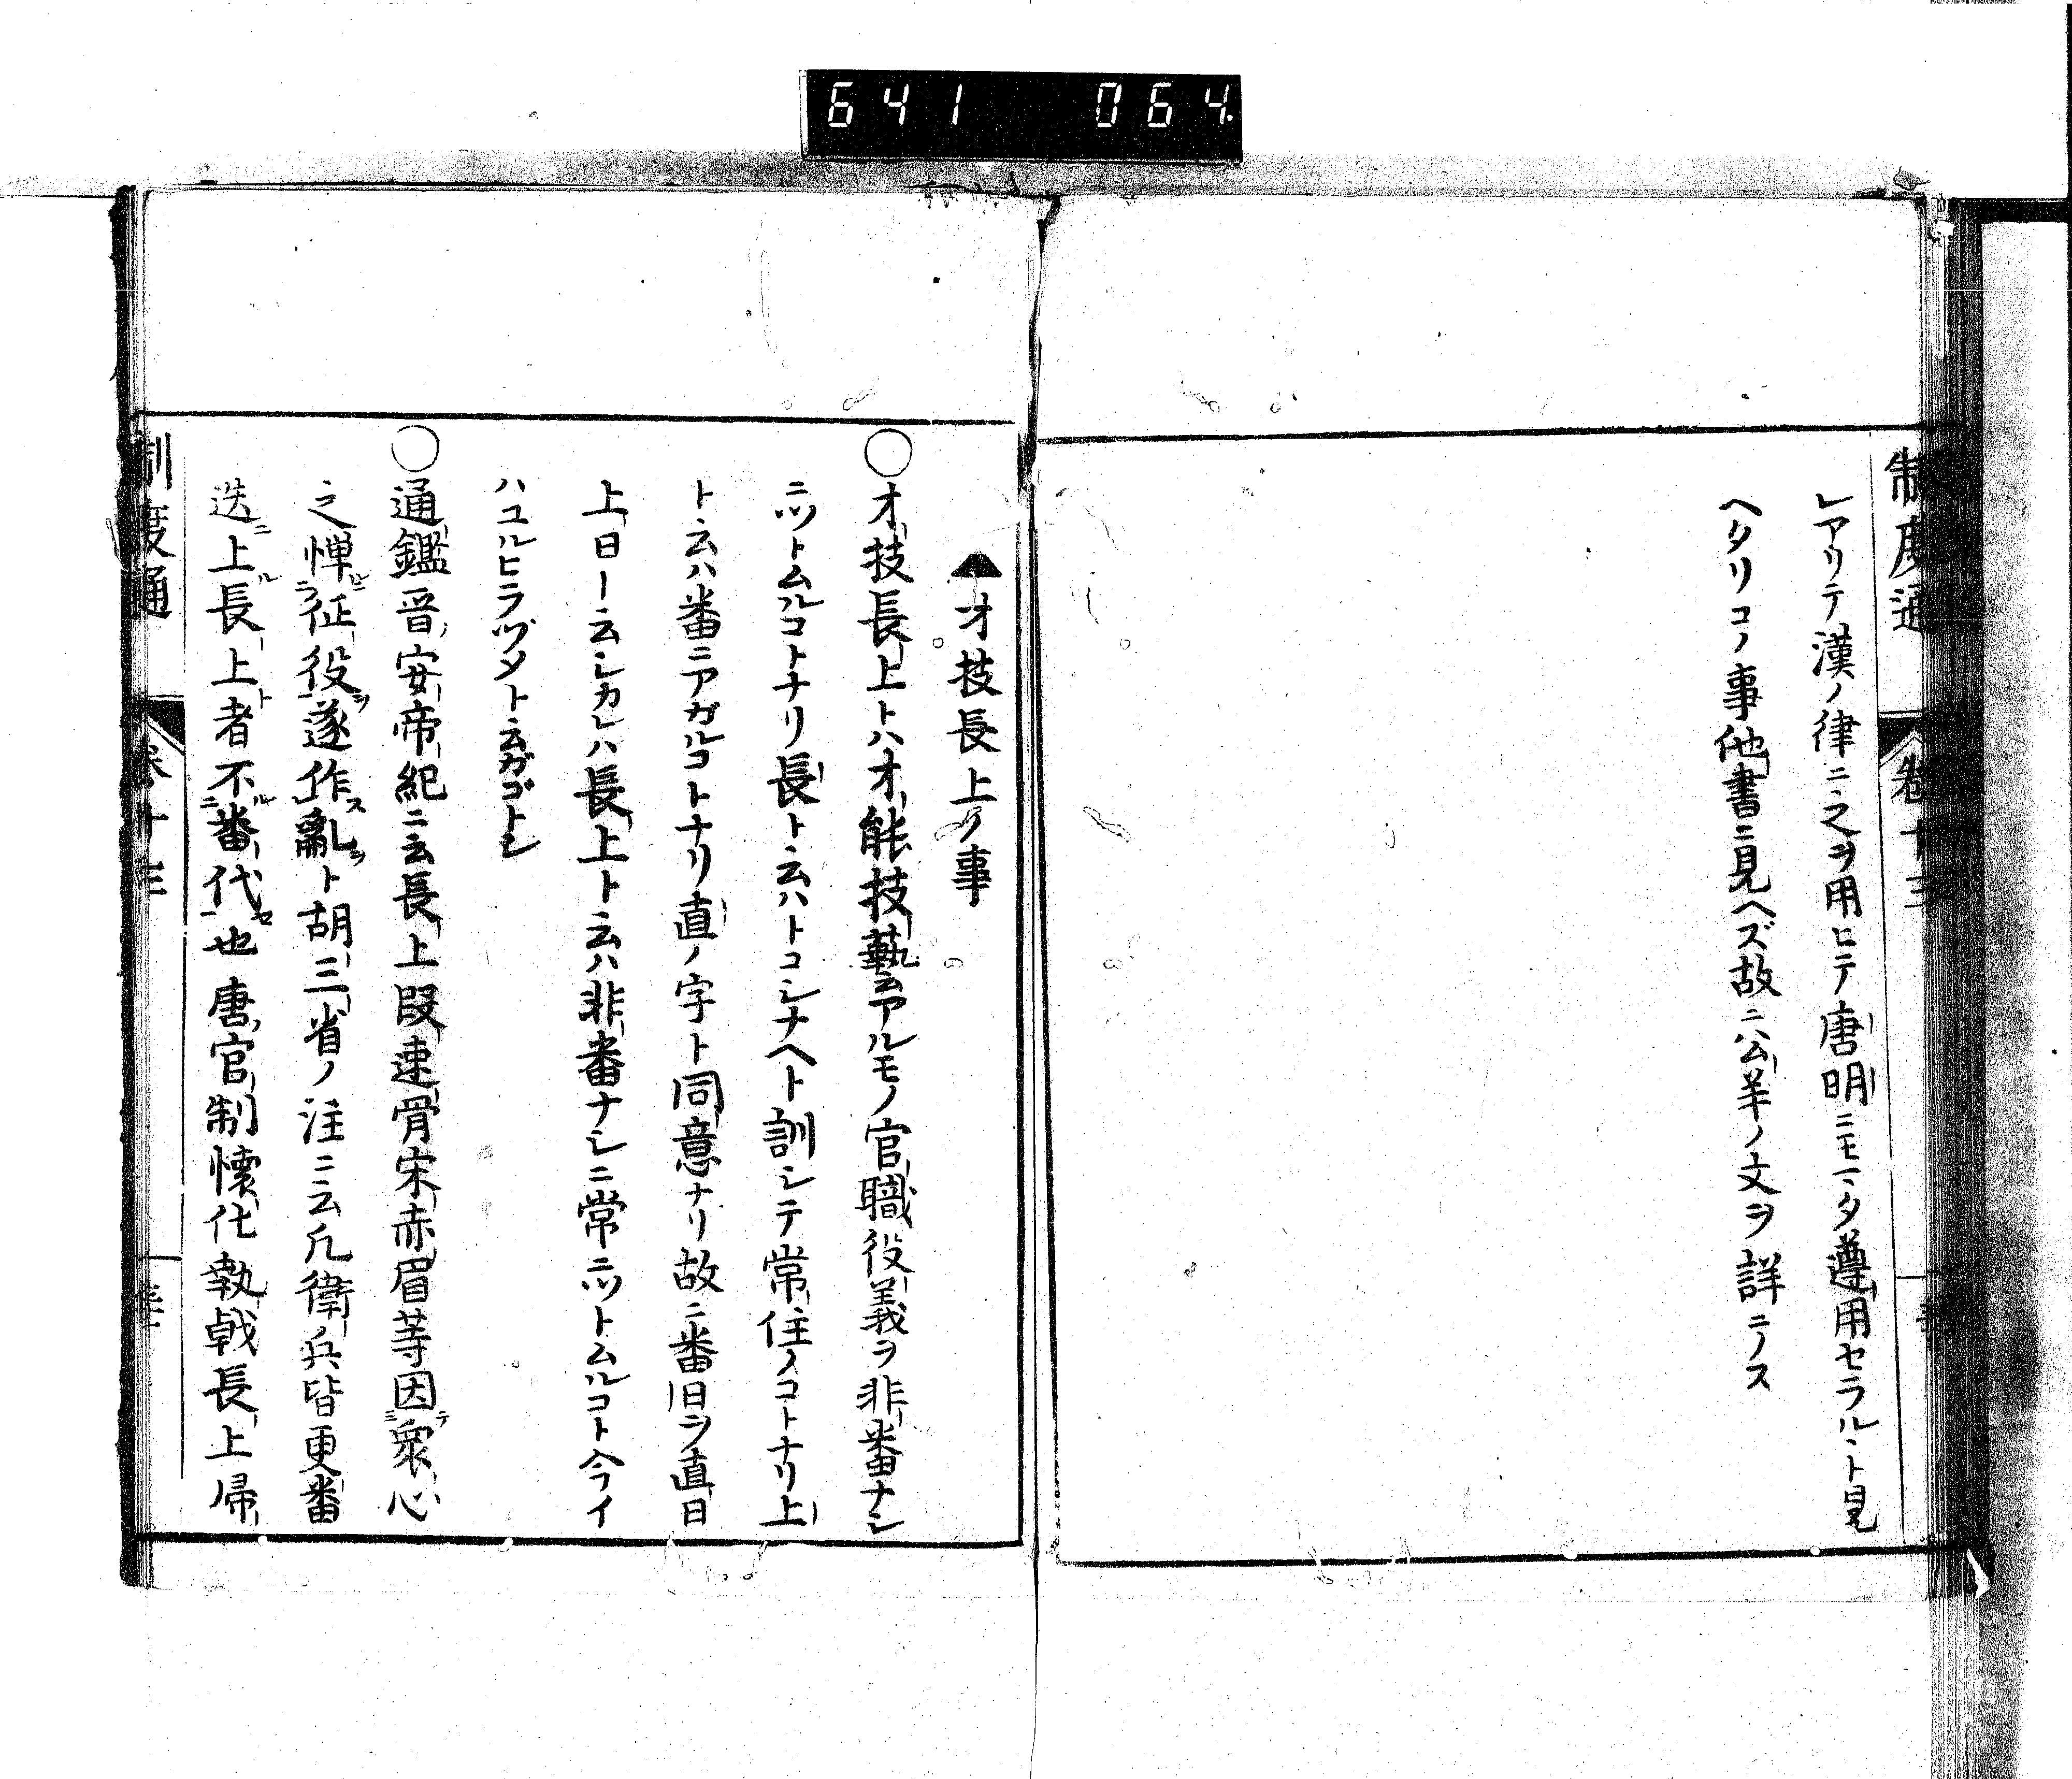 641 064
制度通 卷十三
レアリテ漢ノ律ニ之ヲ用ヒテ唐明ニモ一タ遵用セラルヽト見
ヘタリコノ事他書ニ見ヘズ故ニ公羊ノ文ヲ詳ニノス
▲才技長上ノ事
○才技長上トハ才能技藝アルモノ官職役義ヲ非番ナシ
ニツトムルコトナリ長ト云ハトコシナヘト訓シテ常住ノコトナリ上
ト云ハ番ニアガルコトナリ直ノ字ト同意ナリ故ニ番日ヲ直日
上日ト云シカレハ長上ト云ハ非番ナシニ常ニツトムルコト今イ
ハユルヒラヅメト云ガゴトシ
○通鑑晉安帝紀ニ云長上段速骨宋赤眉等因テ衆心
之憚ルニ征役ヲ遂作ス亂ヲト胡三省ノ注ニ云凡衛兵皆更番
迭ニ上ル長上者ト不ル番代セ也唐官制懷化執戟長上歸
制度通 卷十三